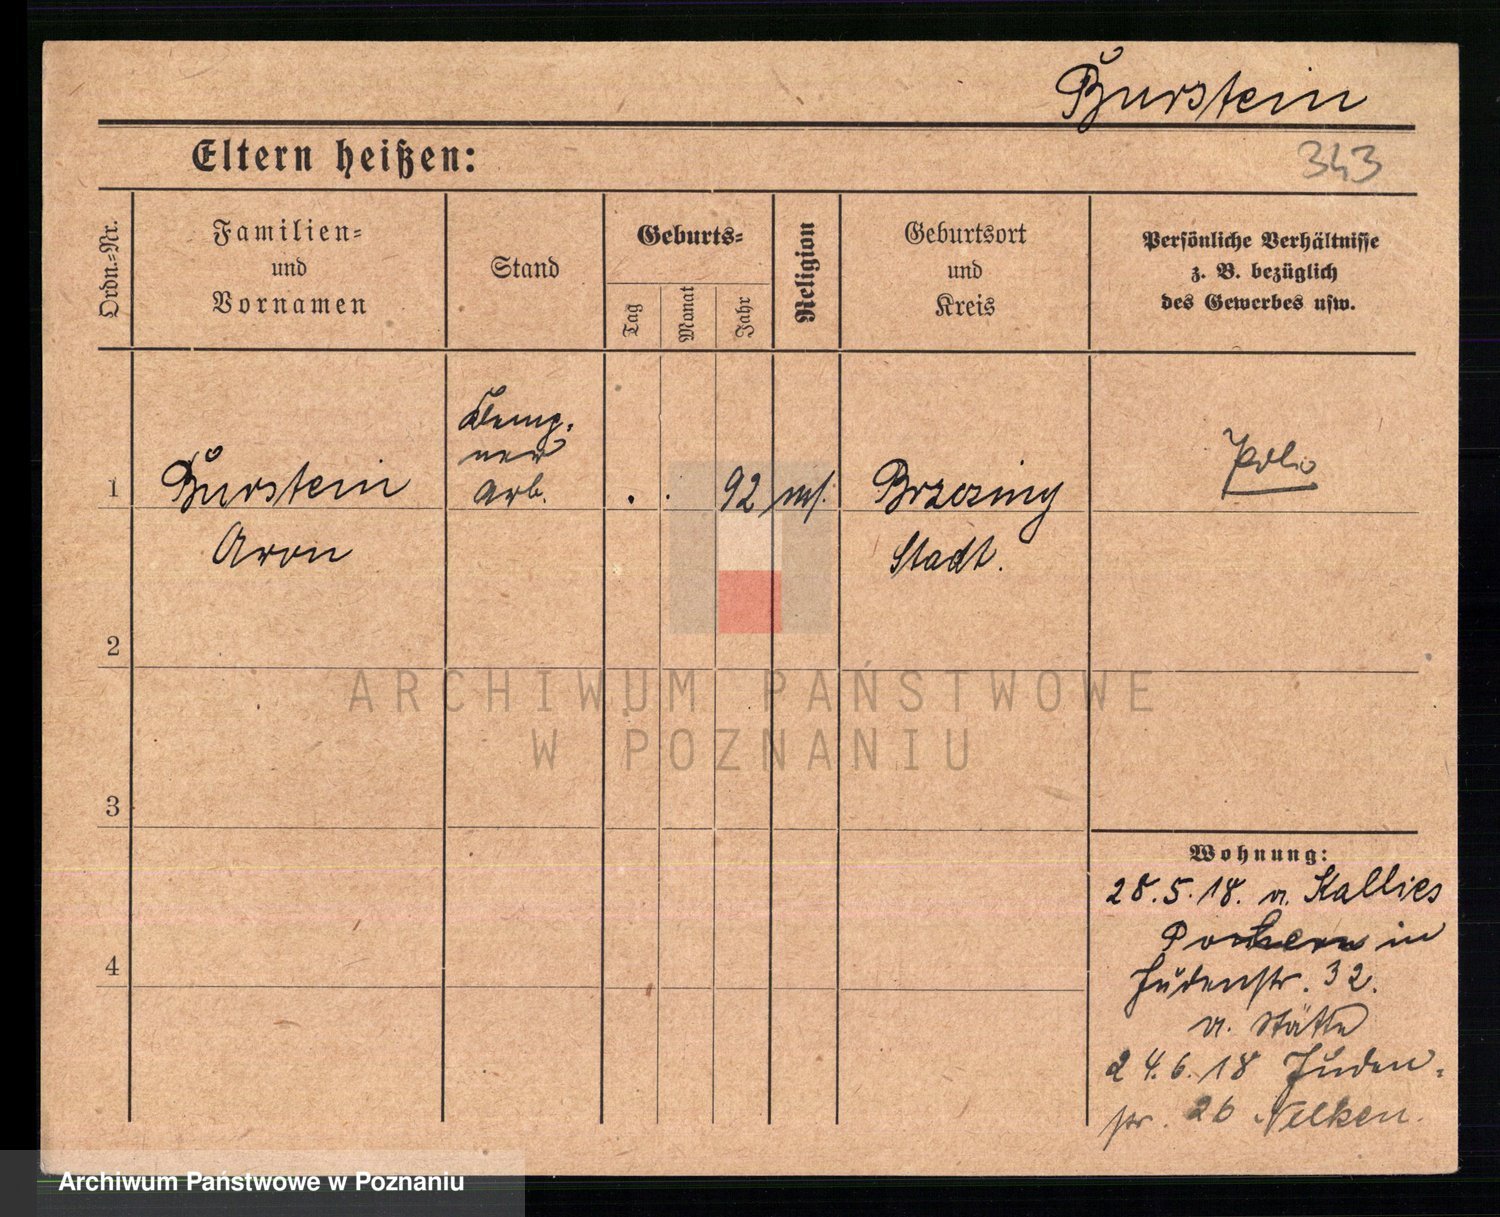 Burstein
Eltern heißen:
343
Ordn.-Nr.
Familien-
und
Vornamen
Stand
Geburts-
Tag
Monat
Jahr
Religion
Geburtsort
und
Kreis
Persönliche Verhältnisse
z. B. bezüglich
des Gewerbes usw.
Klemp-
ner
Arb.
1
Burstein
. . 92
Brzeziny
Aron
Stadt.
2
ARCHIWUM PAŃSTWOWE
W POZNANIU
3
Wohnung:
28.5.18. v. Kallies
in
4
Judenstr. 32.
v. Stätte
24.6.18 Juden-
str. 26 Nelken.
Archiwum Państwowe w Poznaniu